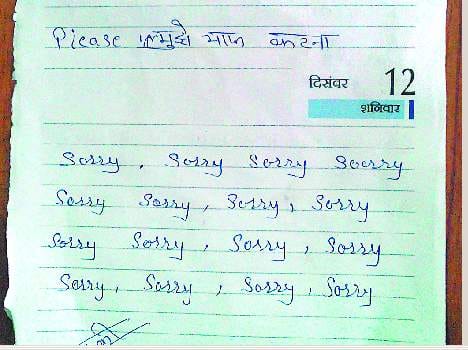 Please मुझे माफ करना
दिसंबर 12
शनिवार
Sorry, Sorry Sorry Soerry
Sorry Sorry, Sorry, Sorry
Sorry Sorry, Sorry, Sorry
Sorry, Sorry, Sorry, Sorry